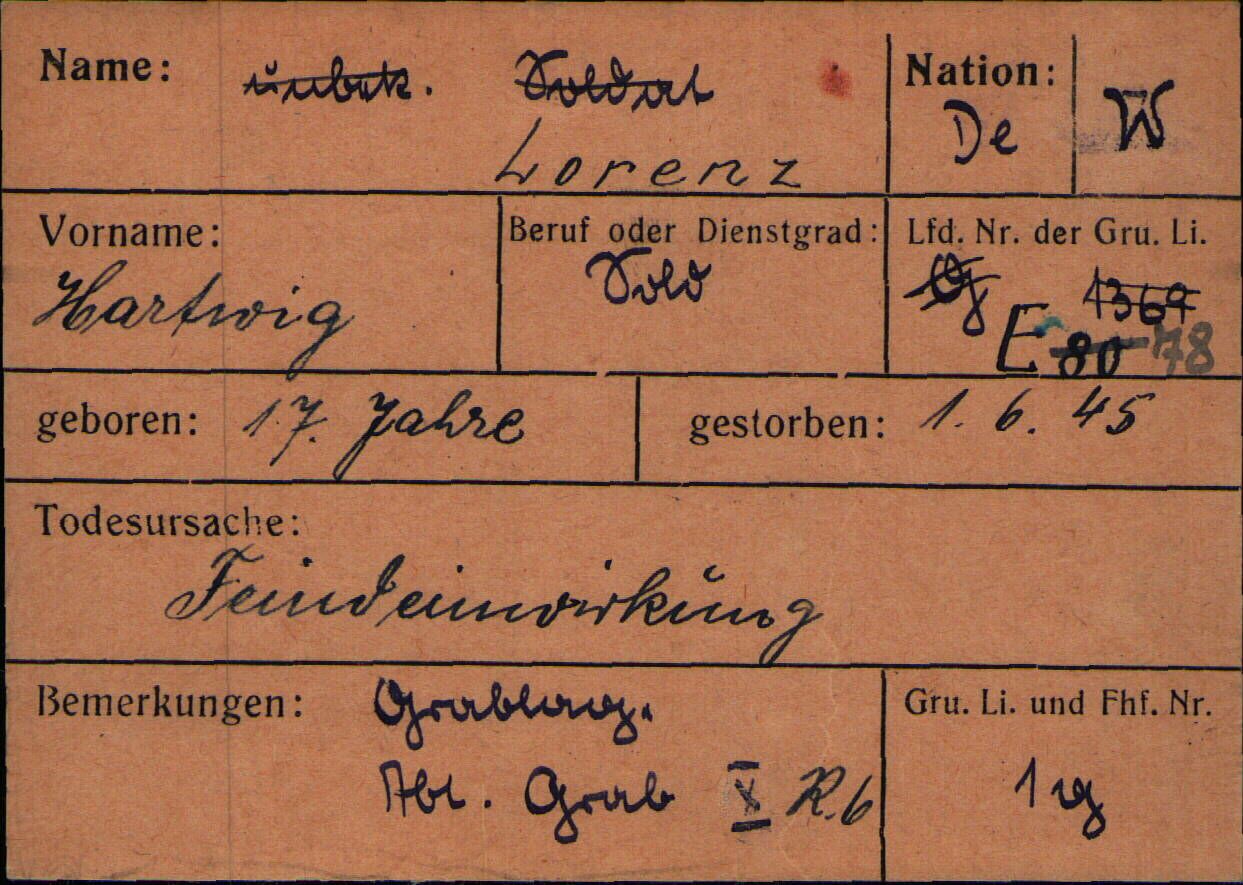 Name: unbek. Soldat Nation:
De W
Lorenz
Vorname: Beruf oder Dienstgrad: Lfd. Nr. der Gru. Li.
Hartwig Sold 1369
E 80 78
geboren: 17. Jahre gestorben: 1. 6. 45
Todesursache:
Feindeinwirkung
Bemerkungen: Grablag. Gru. Li. und Fhf. Nr.
Abt. Grab X R.6 1 g